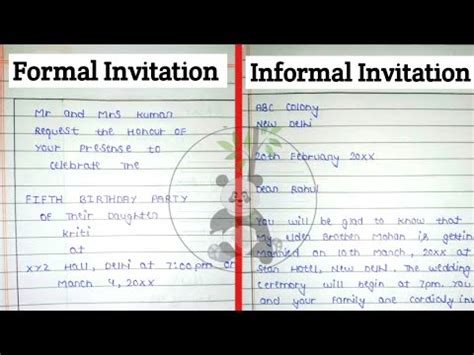 Formal Invitation
Mr and Mrs Kuman
Request the Honour of
your Presense to
celebrate the
FIFTH BIRTHDAY PARTY
of Their Daughter
kriti
at
XYZ Hall, Delhi at 7:00 pm on
March 4, 20XX
Informal Invitation
ABC Colony
New Delhi
20th February 20XX
Dean Rahul
You will be glad to know that
my elder Brother Mohan is gettin
Married on 10th March, 20XX at
Hotel, New Delhi. The wedding
ceremony will begin at 7pm. You
and your Family are cordially inv